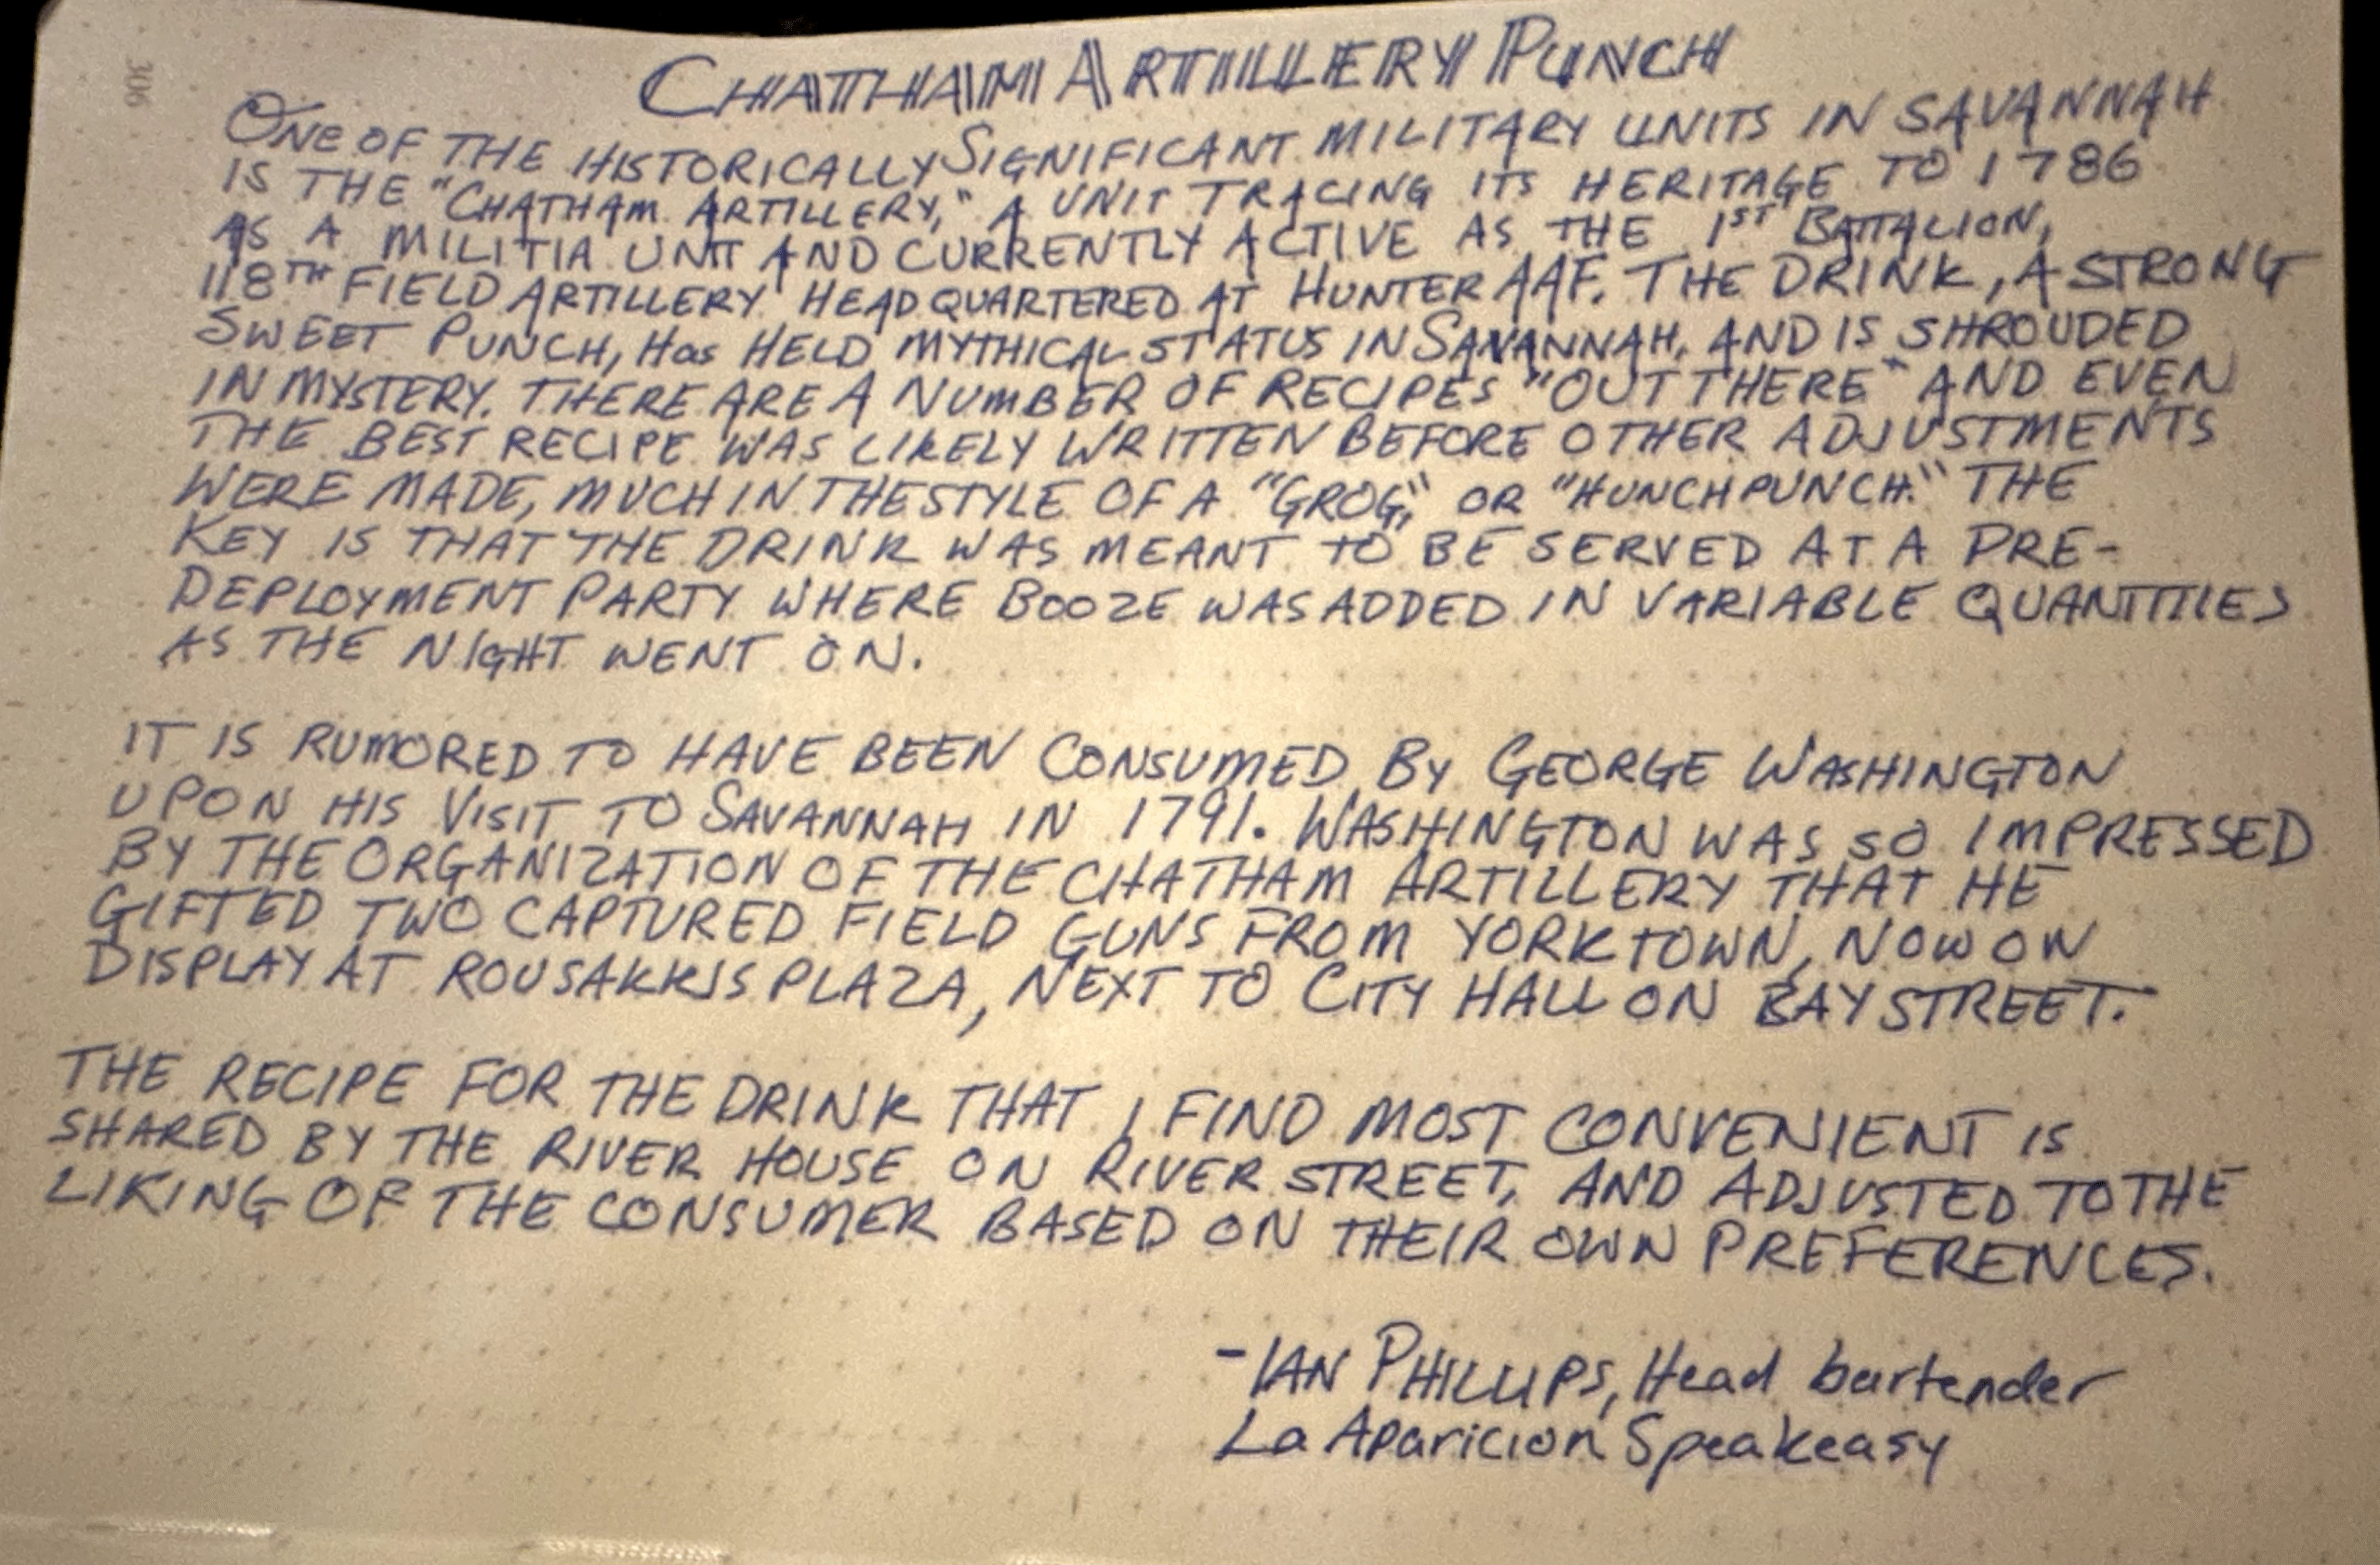 306
CHATHAM ARTILLERY PUNCH
ONE OF THE HISTORICALLY SIGNIFICANT MILITARY UNITS IN SAVANNAH
IS THE "CHATHAM ARTILLERY," A UNIT TRACING ITS HERITAGE TO 1786
AS A MILITIA UNIT AND CURRENTLY ACTIVE AS THE 1ST BATTALION,
118TH FIELD ARTILLERY HEADQUARTERED AT HUNTER AAF. THE DRINK, A STRONG
SWEET PUNCH, Has HELD MYTHICAL STATUS IN SAVANNAH, AND IS SHROUDED
IN MYSTERY. THERE ARE A NUMBER OF RECIPES "OUT THERE" AND EVEN
THE BEST RECIPE WAS LIKELY WRITTEN BEFORE OTHER ADJUSTMENTS
WERE MADE, MUCH IN THE STYLE OF A "GROG," OR "HUNCHPUNCH." THE
KEY IS THAT THE DRINK WAS MEANT TO BE SERVED AT A PRE-
DEPLOYMENT PARTY WHERE BOOZE WAS ADDED IN VARIABLE QUANTITIES
AS THE NIGHT WENT ON.
IT IS RUMORED TO HAVE BEEN CONSUMED BY GEORGE WASHINGTON
UPON HIS VISIT TO SAVANNAH IN 1791. WASHINGTON WAS SO IMPRESSED
BY THE ORGANIZATION OF THE CHATHAM ARTILLERY THAT HE
GIFTED TWO CAPTURED FIELD GUNS FROM YORKTOWN, NOW ON
DISPLAY AT ROUSAKKIS PLAZA, NEXT TO CITY HALL ON BAY STREET.
THE RECIPE FOR THE DRINK THAT I FIND MOST CONVENIENT IS
SHARED BY THE RIVER HOUSE ON RIVER STREET, AND ADJUSTED TO THE
LIKING OF THE CONSUMER BASED ON THEIR OWN PREFERENCES.
-IAN PHILLIPS, Head bartender
La Aparicion Speakeasy